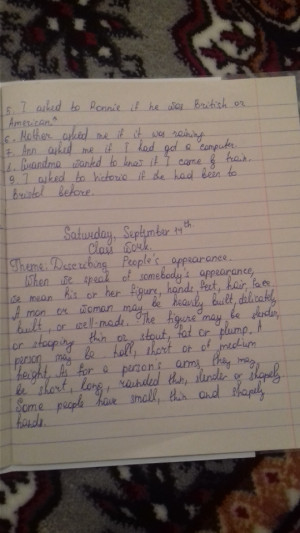 5. I asked to Ronnie if he was British or
American.
6. Mother asked me if it was raining
7. Ann asked me if I had got a computer.
8. Grandma wanted to know if I came by train.
9. I asked to Victoria if she had been to
Bristol before.
Saturday, September 14th.
Class Work.
Theme: Describing People's appearance.
When we speak of somebody's appearance,
we mean his or her figure, hands, feet, hair, face.
A man or woman may be heavily built, delicately
built, or well-made. The figure may be slender,
or stooping thin or stout, fat or plump. A
person may be tall, short or of medium
height. As for a person's arms, they may
be short, long, rounded thin, slender or shapely
Some people have small, thin and shapely
hands.